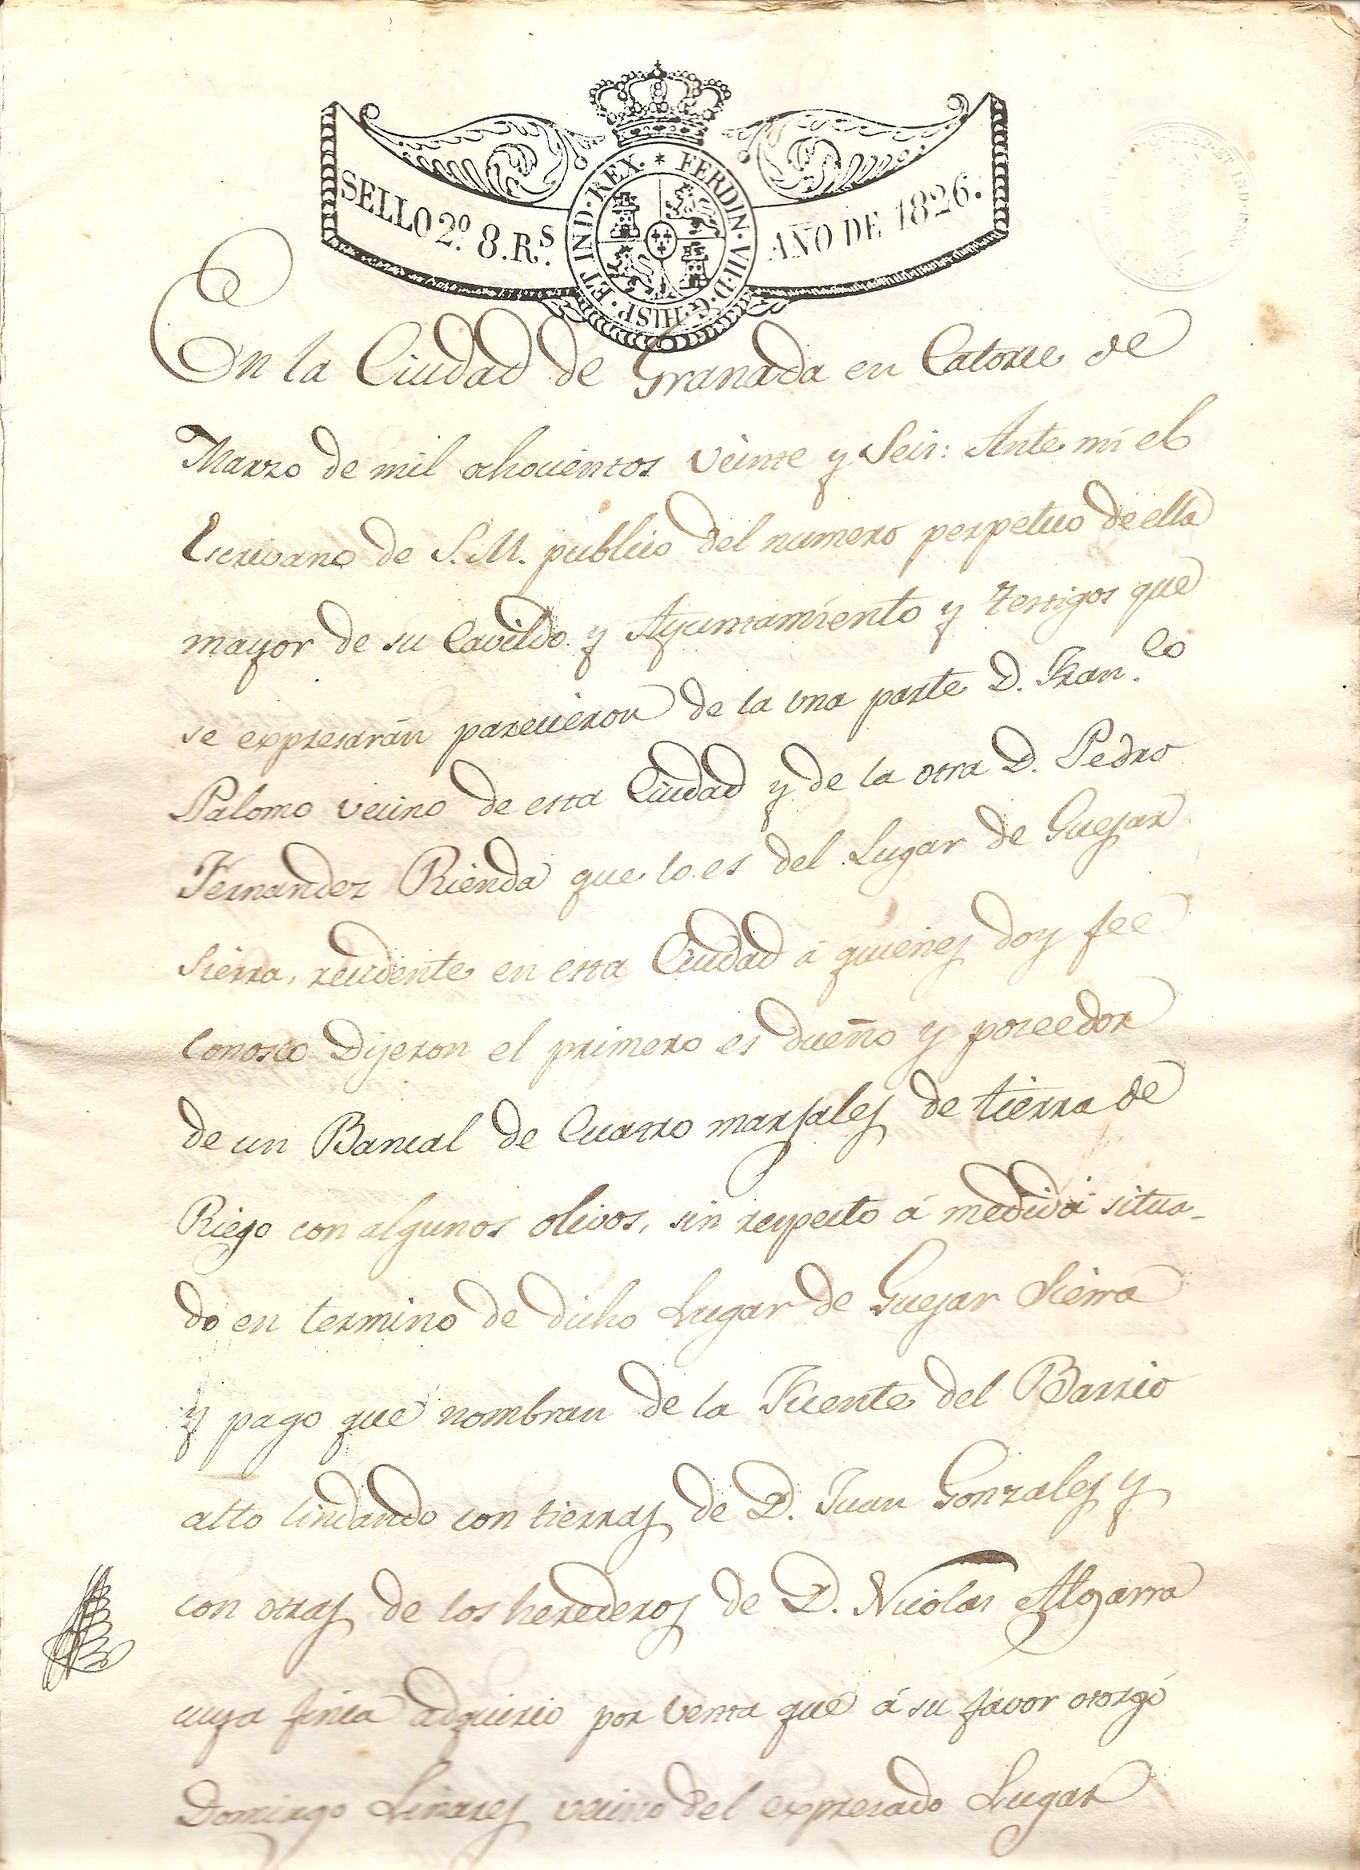 SELLO 2º. 8. Rˢ. AÑO DE 1826.
FERDIN · VII · D · G · HISP · ET IND · REX.
En la Ciudad de Granada en Catorce de
Marzo de mil ochocientos veinte y Seis: Ante mi el
Escrivano de S. M. publico del numero perpetuo de ella
mayor de su Cavildo y Ayuntamiento y testigos que
se expresarán parecieron de la una parte D. Fran.co
Palomo vecino de esta Ciudad y de la otra D. Pedro
Fernandez Rienda que lo es del Lugar de Guejar
Sierra, recidente en esta Ciudad á quienes doy fee
conosco Dijeron el primero es dueño y poseedor
de un Bancal de Cuatro marjales de tierra de
Riego con algunos olivos, sin respecto á medida situa-
do en termino de dicho Lugar de Guejar Sierra
y pago que nombran de la Fuente del Barrio
alto lindando con tierras de D. Juan Gonzales y
con otras de los herederos de D. Nicolas Algarra
cuya finca adquirio por venta que á su favor otorgó
Domingo Linares vecino del expresado Lugar